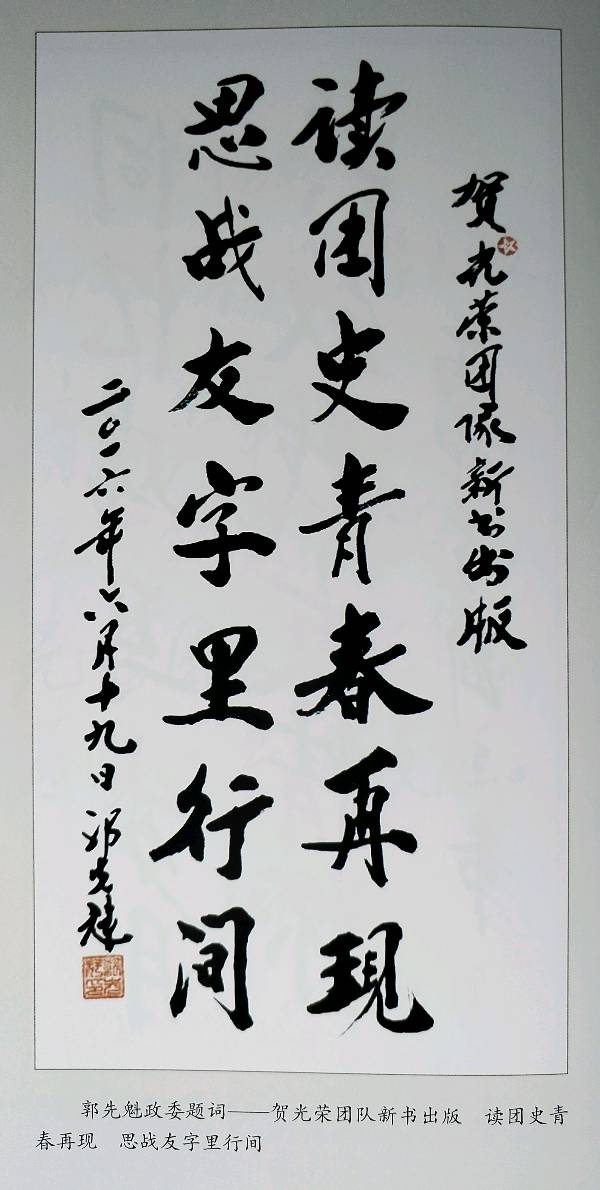 贺光荣团队新书出版
读团史青春再现
思战友字里行间
二〇一六年六月十九日 郭先魁
郭先魁政委题词——贺光荣团队新书出版　读团史青
春再现　思战友字里行间